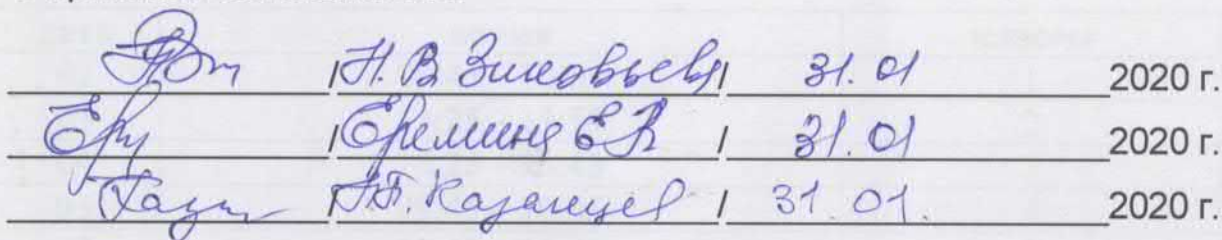 /Н. В. Зиновьева/ 31.01 2020 г.
/Еремина Е.В / 31.01 2020 г.
/Казанцев / 31.01. 2020 г.